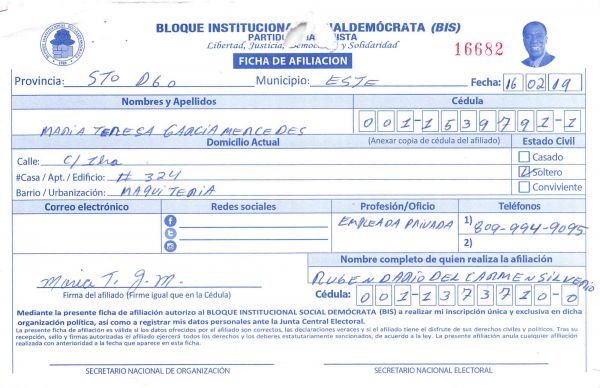 BLOQUE INSTITUCIONAL SOCIALDEMÓCRATA (BIS)
Libertad, Justicia, Democracia y Solidaridad
16682
FICHA DE AFILIACION
Provincia: STO DGO Municipio: ESTE Fecha: 16 02 19
Nombres y Apellidos Cédula
MARIA TERESA GARCIA MERCEDES 001-1539791-1
Domicilio Actual (Anexar copia de cédula del afiliado) Estado Civil
Calle: C/ 1ra Casado
#Casa / Apt. / Edificio: # 324 Soltero
Barrio / Urbanización: MAQUITERIA Conviviente
Correo electrónico Redes sociales Profesión/Oficio Teléfonos
EMPLEADA PRIVADA 1) 809-994-9095
2)
Nombre completo de quien realiza la afiliación
Maria T. G. M. RUBEN DARIO DEL CARMEN SILVERIO
Firma del afiliado (Firme igual que en la Cédula) Cédula: 001-1373710-0
Mediante la presente ficha de afiliación autorizo al BLOQUE INSTITUCIONAL SOCIAL DEMÓCRATA (BIS) a realizar mi inscripción única y exclusiva en dicha
organización política, así como a registrar mis datos personales ante la Junta Central Electoral.
La presente ficha de afiliación es válida si los datos ofrecidos por el afiliado son correctos, las declaraciones veraces y si el afiliado tiene el disfrute de sus derechos civiles y políticos. Tras su
recepción, sello y firmas autorizadas el afiliado ejercerá todos los derechos y los deberes estatutariamente sancionados, de acuerdo a la ley. La presente afiliación anula cualquier afiliación
realizada con anterioridad a la fecha que aparece en esta ficha.
SECRETARIO NACIONAL DE ORGANIZACIÓN SECRETARIO NACIONAL ELECTORAL